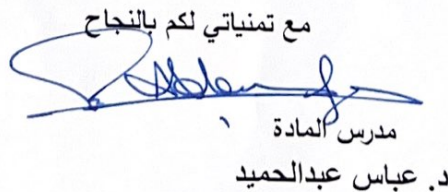 مع تمنياتي لكم بالنجاح
مدرس المادة
د. عباس عبدالحميد